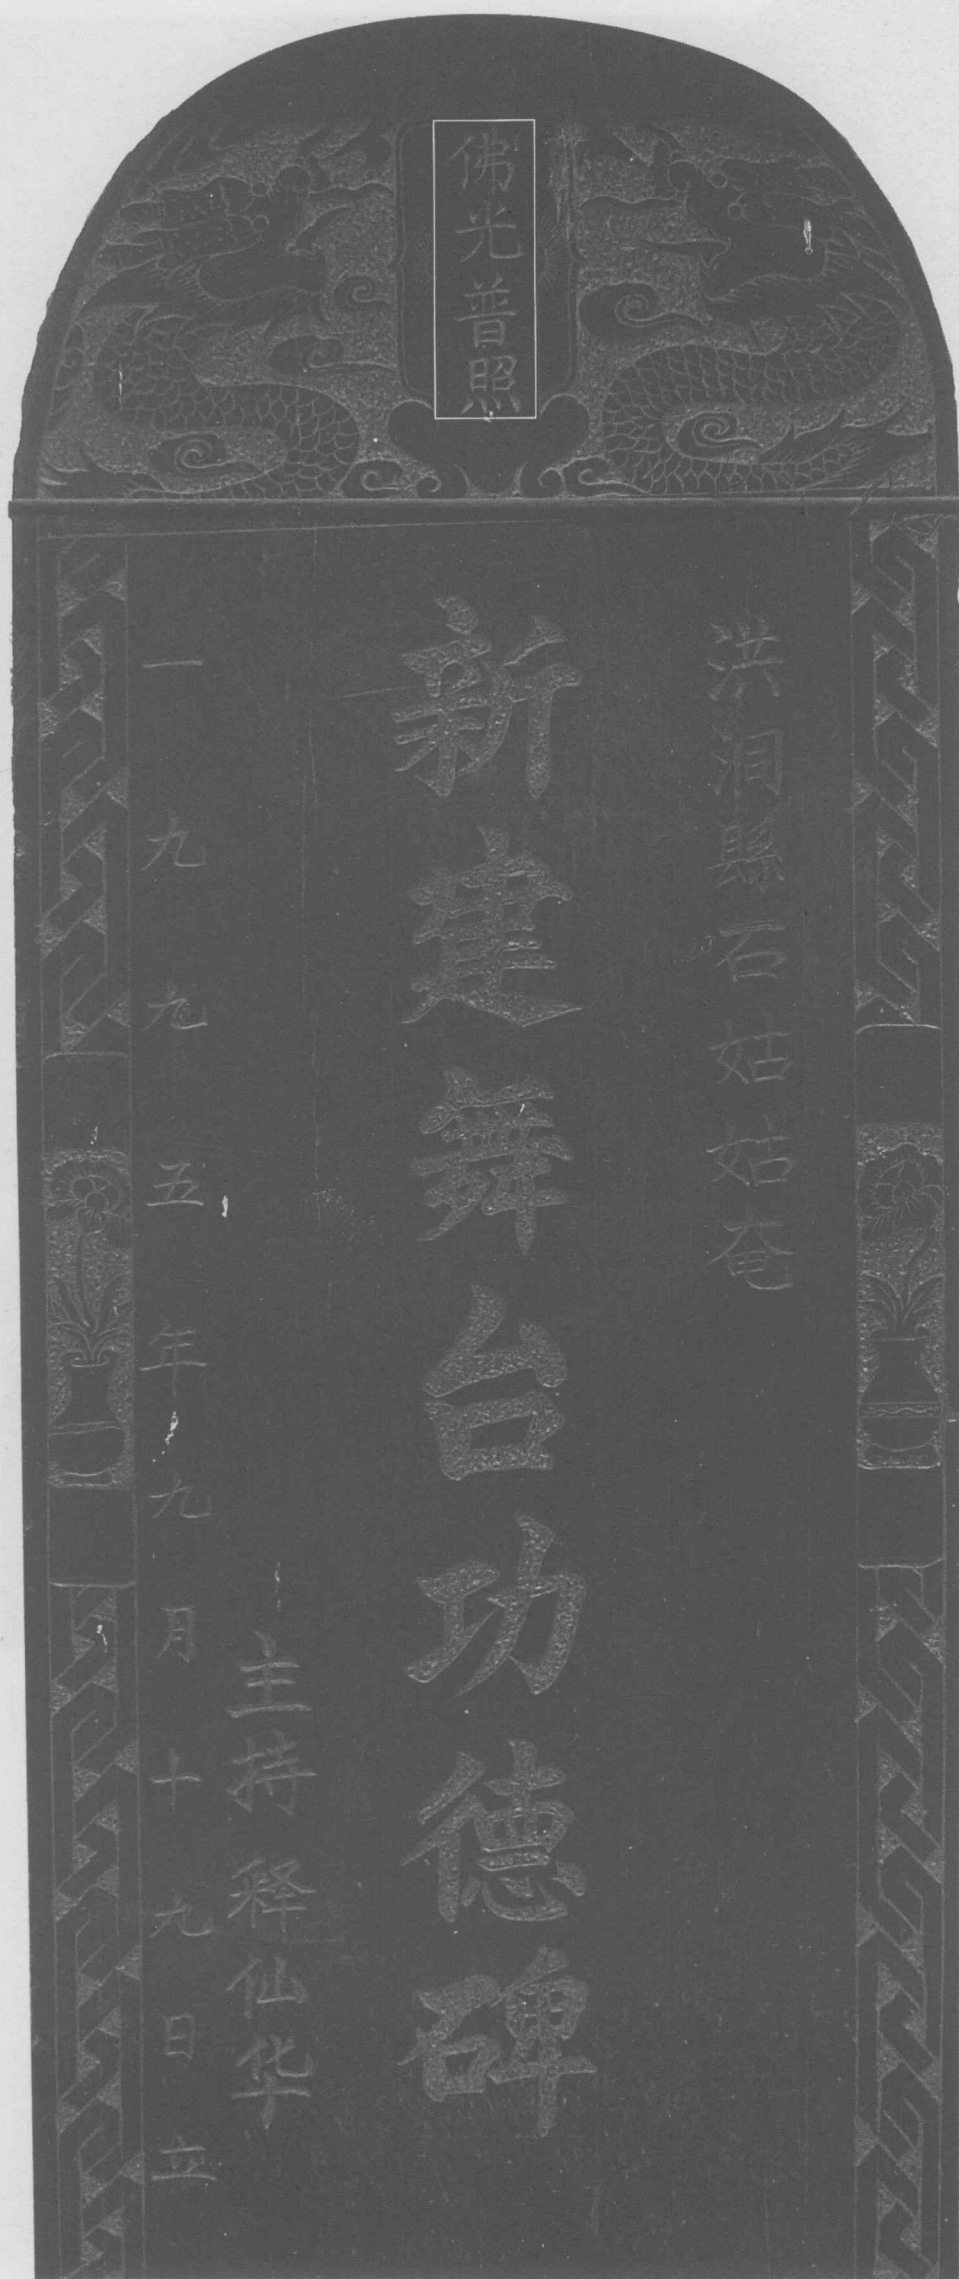 佛光普照
洪洞縣石姑姑奄
新建舞台功德碑
主持 释仙华
一九九五年九月十九日立